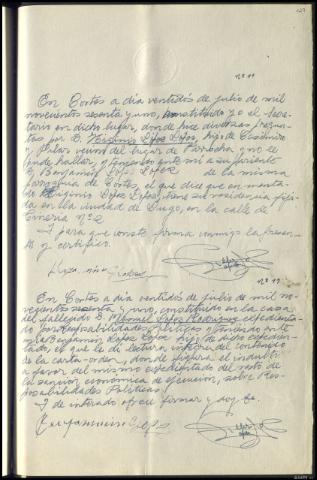 nº 11
En Cortes a día ventidós de julio de mil
novecientos sesenta y uno, constituído yo el Secre-
tario en dicho lugar, donde hice diversas pregun-
tas por D. Herminio López López, hijo de Casimiro
y Pilar vecino del lugar de Parrocha y no se
puede hallar, y teniendo ante mí a su pariente
D. Benjamín López López de la misma
parroquia de Cortes, el que dice que en menta-
do Herminio López López tiene su residencia fija-
da en la ciudad de Lugo, en la calle de
nº 2
I para que conste firma conmigo la presen-
te y certifico.
nº 11
En Cortes a día ventidós de julio de mil no-
vecientos sesenta y uno, constituído en la casa
del fallecido D. Manuel López Rodríguez expedientado
por Responsabilidades Políticas y teniendo ante
mí a Benjamín López López hijo de dicho expedien-
tado, el que le dí lectura íntegra del contenido
de la carta-orden, donde figura el indulto
a favor del mismo expedientado del resto de
la sanción económica de ejecución, sobre Res-
ponsabilidades Políticas.
I de enterado firmar y doy fe.
Benjamín López